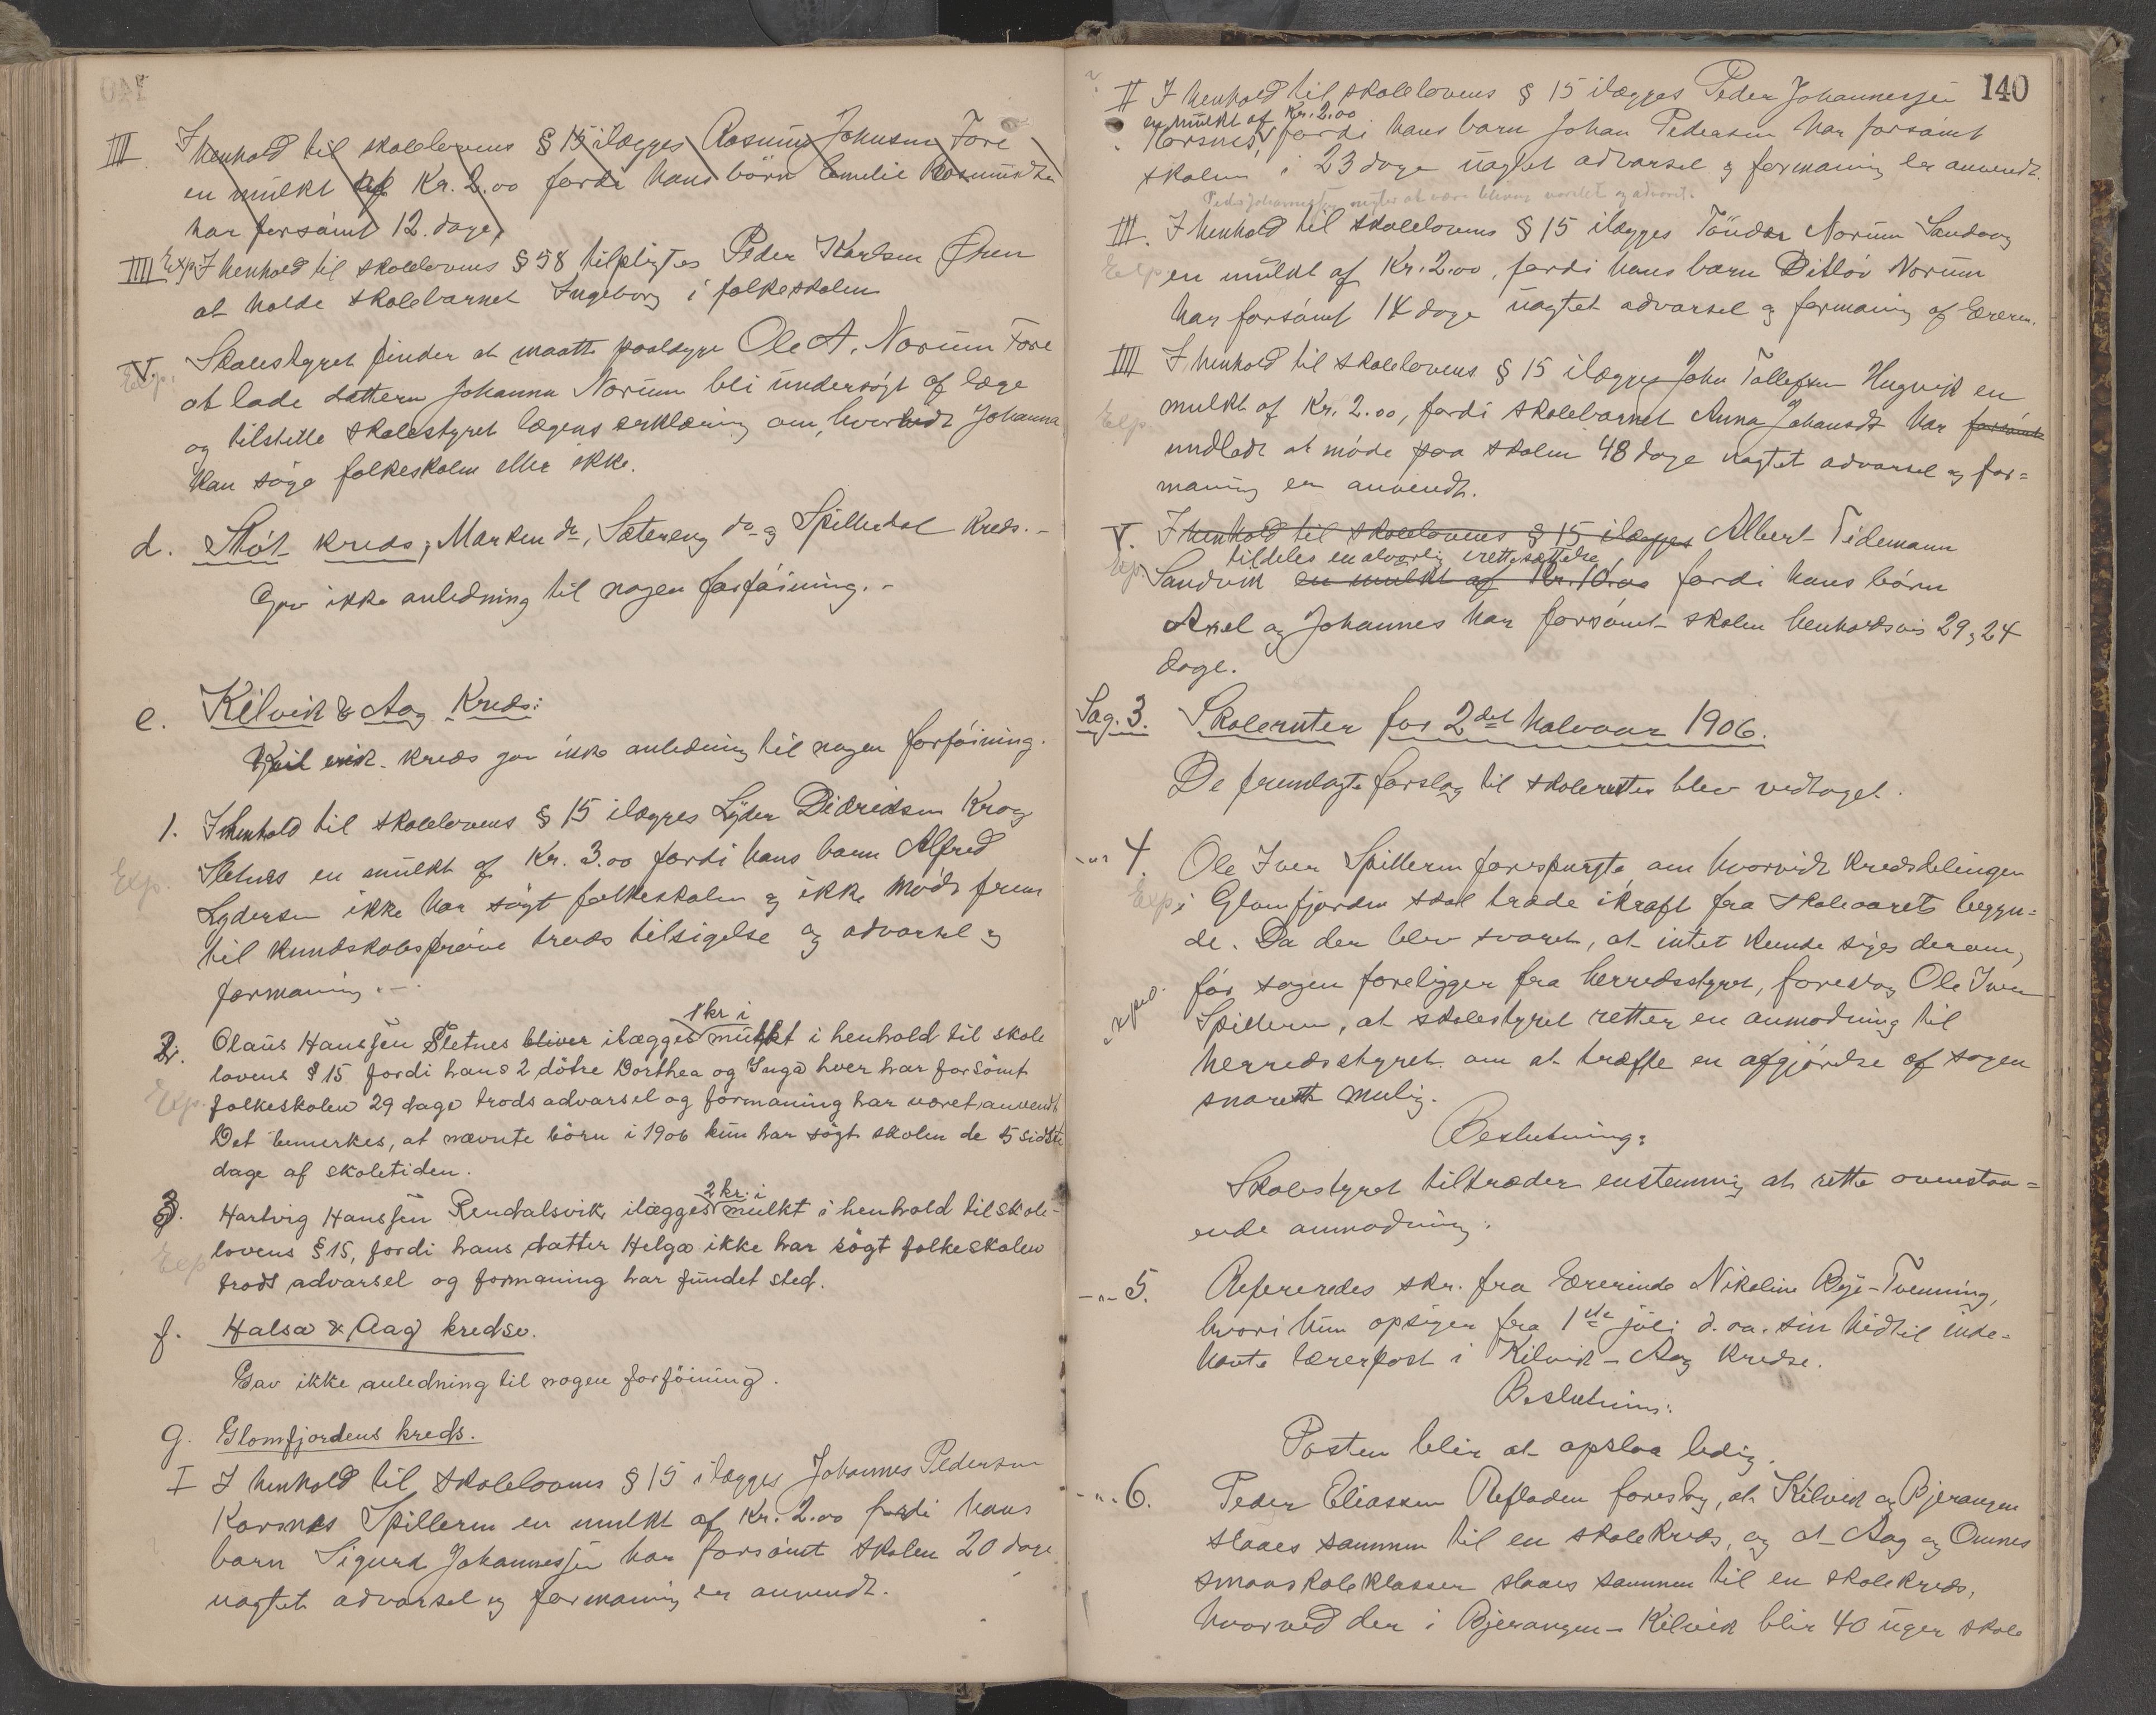 III I henhold til skolelovens § 15 ilægges Rasmus Johnsen Fore
en mulkt af Kr. 2.00 fordi hans börn Emelie
har forsömt 12. dage,
IIII Exp. I henhold til skolelovens § 58 tilpligtes Peder Karlsen Øren
at holde skolebarnet Ingeborg i folkeskolen
V. Skolestyret finder at maatte paalægge Ole A. Norum Fore
Exp.
at lade datteren Johanna Norum bli undersögt af læge
og tilstille skolestyret lægens erklæring om, hvorvidt Johanna
kan söge folkeskolen eller ikke.
d. Stöt kreds; Marken do, Sætereng do og Spilderdal kreds. -
Gav ikke anledning til nogen forföining. -
e. Kilvik & Aag Kreds:
Kilvik kreds gav ikke anledning til nogen forföining.
1. I henhold til skolelovens § 15 ilægges Lyder Didriksen Krog
Sletnes en mulkt af Kr. 3.00 fordi hans barn Alfred
Exp.
Lydersen ikke har sögt folkeskolen og ikke mödt frem
til kundskabspröve trods tilsigelse og advarsel og
formaning. -
1 kr i
2. Olaus Hanssen Sletnes bliver ilægges mulkt i henhold til skole
lovens § 15 fordi hans 2 döttre Dorthea og Inga hver har forsömt
Exp. folkeskolen 29 dage trods advarsel og formaning har været anvendt
Det bemerkes, at nævnte börn i 1906 kun har sögt skolen de 5 sidste
dage af skoletiden.
2 kr. i
3. Hartvig Hanssen Rendalsvik ilægges mulkt i henhold til skole-
lovens § 15, fordi hans datter Helga ikke har sögt folkeskolen
Exp
trods advarsel og formaning har fundet sted.
f. Halsa & Aag kredse.
Gav ikke anledning til nogen forföining.
g. Glomfjordens kreds.
I I henhold til skolelovens § 15 ilægges Johannes Pedersen
Korsnes Spilleren en mulkt af Kr. 2.00 fordi hans
barn Sigurd Johannessen har forsömt skolen 20 dage
uagtet advarsel og formaning er anvendt.
140
II I henhold til skolelovens § 15 ilægges Peder Johannessen
en mulkt af Kr. 2.00
Korsnes, fordi hans barn Johan Pedersen har forsömt
skolen i 23 dage uagtet advarsel og formaning er anvendt.
Peder Johannessen negter at være bleven varslet og advaret.
III. I henhold til skolelovens § 15 ilægges Tönder Norum Sandvaag
Exp en mulkt af Kr. 2.00, fordi hans barn Ditlöv Norum
har forsömt 14 dage uagtet advarsel og formaning af læreren.
IIII I henhold til skolelovens § 15 ilægges John Tollefsen Hugvik en
Exp mulkt af Kr. 2.00, fordi skolebarnet Anna Johansdt har forsömt
undladt at möde paa skolen 48 dage uagtet advarsel og for=
maning er anvendt.
V. I henhold til skolelovens § 15 ilægges Albert Tidemann
tildeles en alvorlig irettesættelse
Exp. Sandvik en mulkt af Kr. 10.00 fordi hans börn
Axel og Johannes har forsömt skolen henholdsvis 29 og 24
dage.
Sag. 3. Skoleruter for 2det halvaar 1906.
De fremlagte forslag til skoleruter blev vedtaget.
-"- 4. Ole Iver Spilleren forespurgte om hvorvidt kredsdelingen
Exp i Glomfjorden skal træde ikraft fra skoleaarets begyn=
de. Da der blev svaret, at intet kunde siges derom,
för sagen foreligger fra herredsstyret, foreslog Ole Iver
Exped.
Spilleren, at skolestyret retter en anmodning til
herredsstyret om at træffe en afgjörelse af sagen
snarest mulig.
Beslutning:
Skolestyret tiltræder enstemmig at rette ovenstaa=
ende anmodning.
-"- 5. Refereredes skr. fra lærerinde Nikoline Bye-Tvenning,
hvori hun opsiger fra 1ste juli d. aa. sin hidtil inde-
havte lærerpost i Kilvik - Aag kredse.
Beslutning:
Posten blir at opslaa ledig.
-"- 6. Peder Eliassen Refladen foreslog, at Kilvik og Bjerangen
slaaes sammen til en skolekreds, og at Aag og Ovnes
smaaskoleklasser slaaes sammen til en skolekreds,
hvorved der i Bjerangen - Kilvik blir 40 uger skole